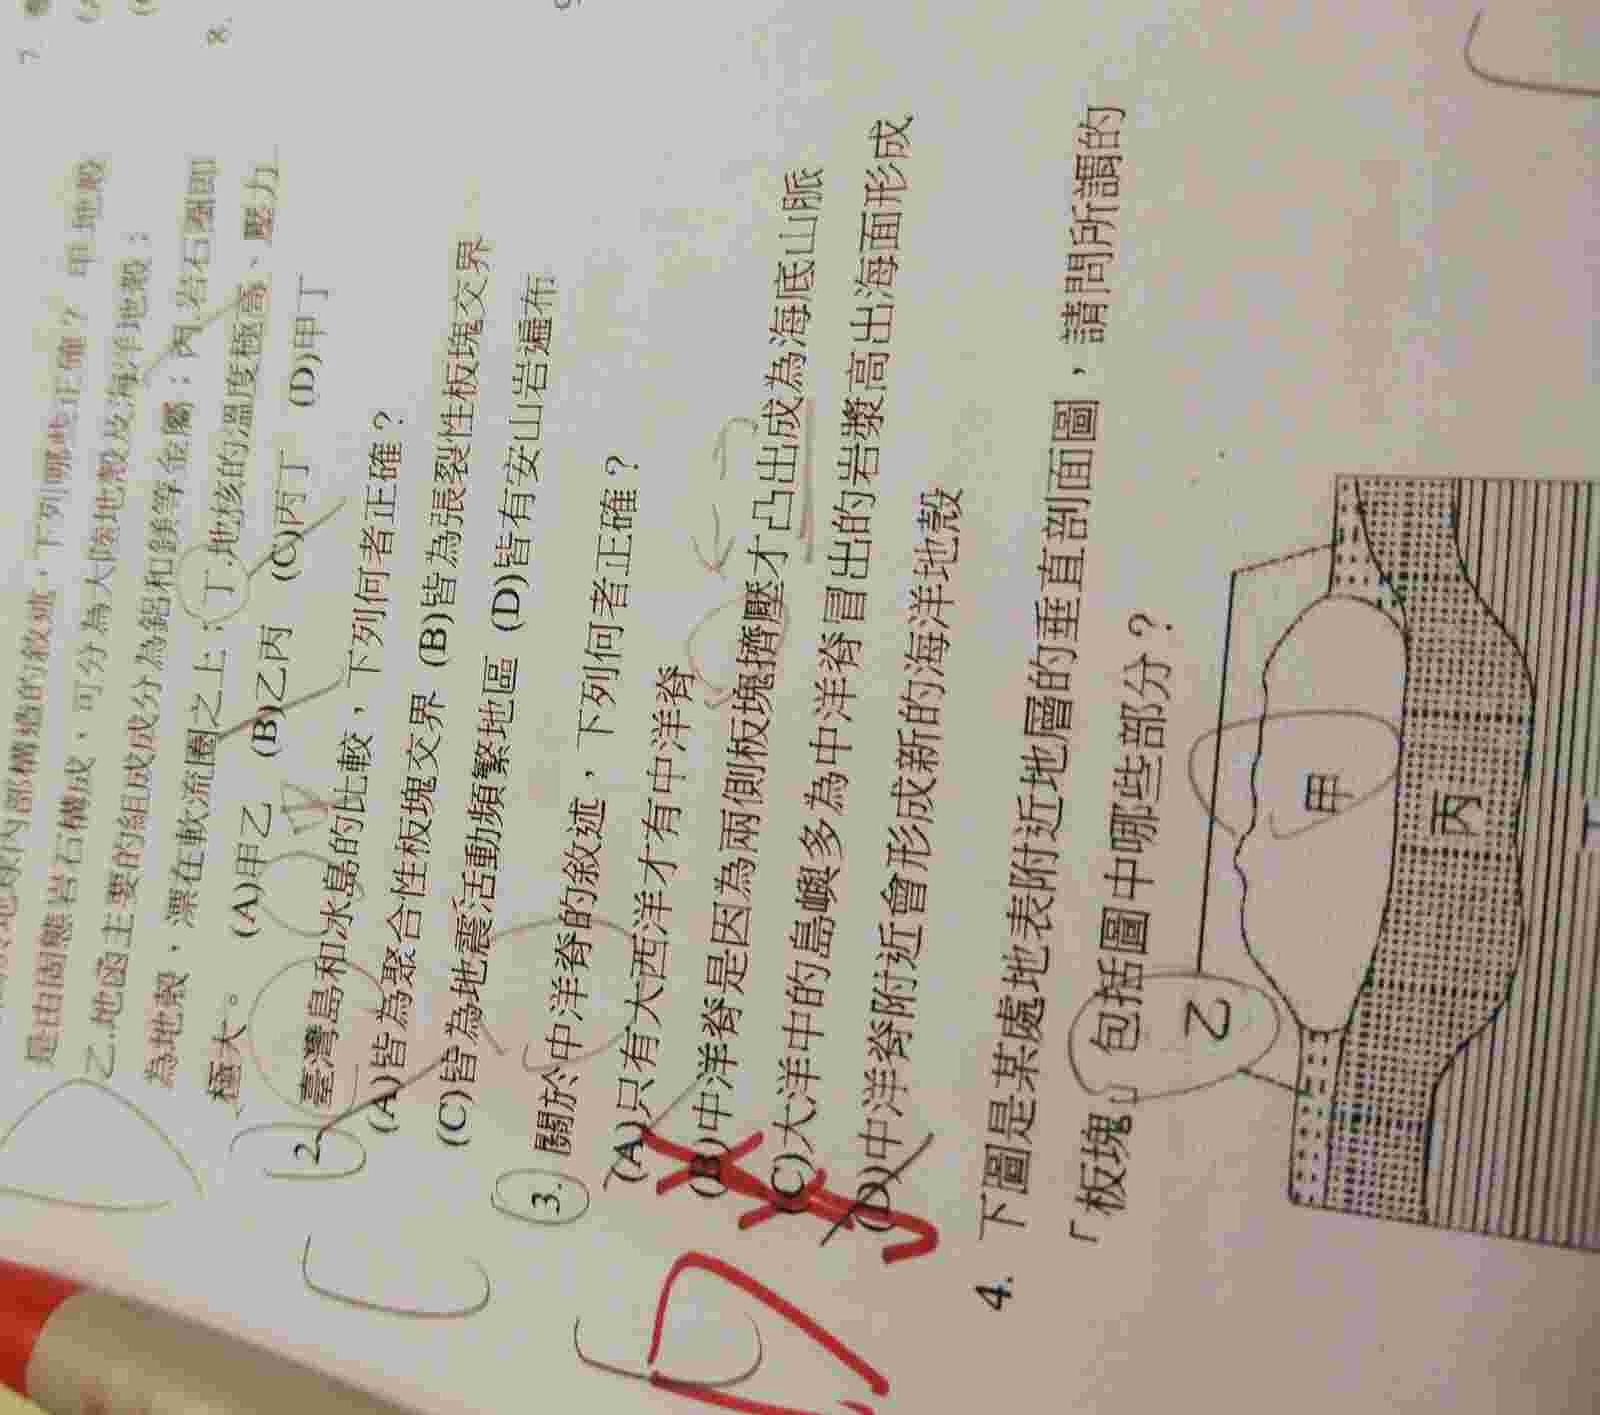 是由固態岩石構成，可分為大陸地殼及海洋地殼；
乙.地函主要的組成成分為鋁和鎂等金屬；丙.岩石圈即
為地殼，漂在軟流圈之上；丁.地核的溫度極高、壓力
極大。 (A)甲乙 (B)乙丙 (C)丙丁 (D)甲丁
2. 臺灣島和冰島的比較，下列何者正確？
(A)皆為聚合性板塊交界 (B)皆為張裂性板塊交界
(C)皆為地震活動頻繁地區 (D)皆有安山岩遍布
3. 關於中洋脊的敘述，下列何者正確？
(A)只有大西洋才有中洋脊
(B)中洋脊是因為兩側板塊擠壓才凸出成為海底山脈
(C)大洋中的島嶼多為中洋脊冒出的岩漿高出海面形成
(D)中洋脊附近會形成新的海洋地殼
4. 下圖是某處地表附近地層的垂直剖面圖，請問所謂的
「板塊」包括圖中哪些部分？
乙
甲
丙
7
8.